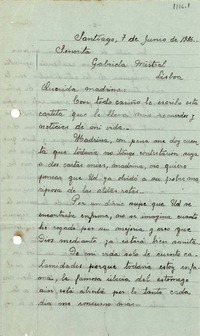 1114.1
Santiago, 7 de Junio de 19
Señorita
Gabriela Mistral
Lisboa
Querida madrina:
Con todo cariño le escribo esta
cartita que le lleva mis recuerdos y
noticias de mi vida.
Madrina, con pena me doy cuen
ta que todavía no tengo contestación suya
a dos cartas mias, madrina, no quiero
pensar que Ud. ya olvidó a su pobre ma
riposa de las aldeas
Por un diario supe que Ud. se
encontraba enferma, no se imagina cuanto
he rogado por su mejoria, y creo que
Dios mediante ya estará bien sanita.
De mi vida solo le cuento ca
lamidades porque todavía estoy enfer
ma, la famosa úlcera del estómago
aún está abierta por lo tanto cada
día me consumo más.